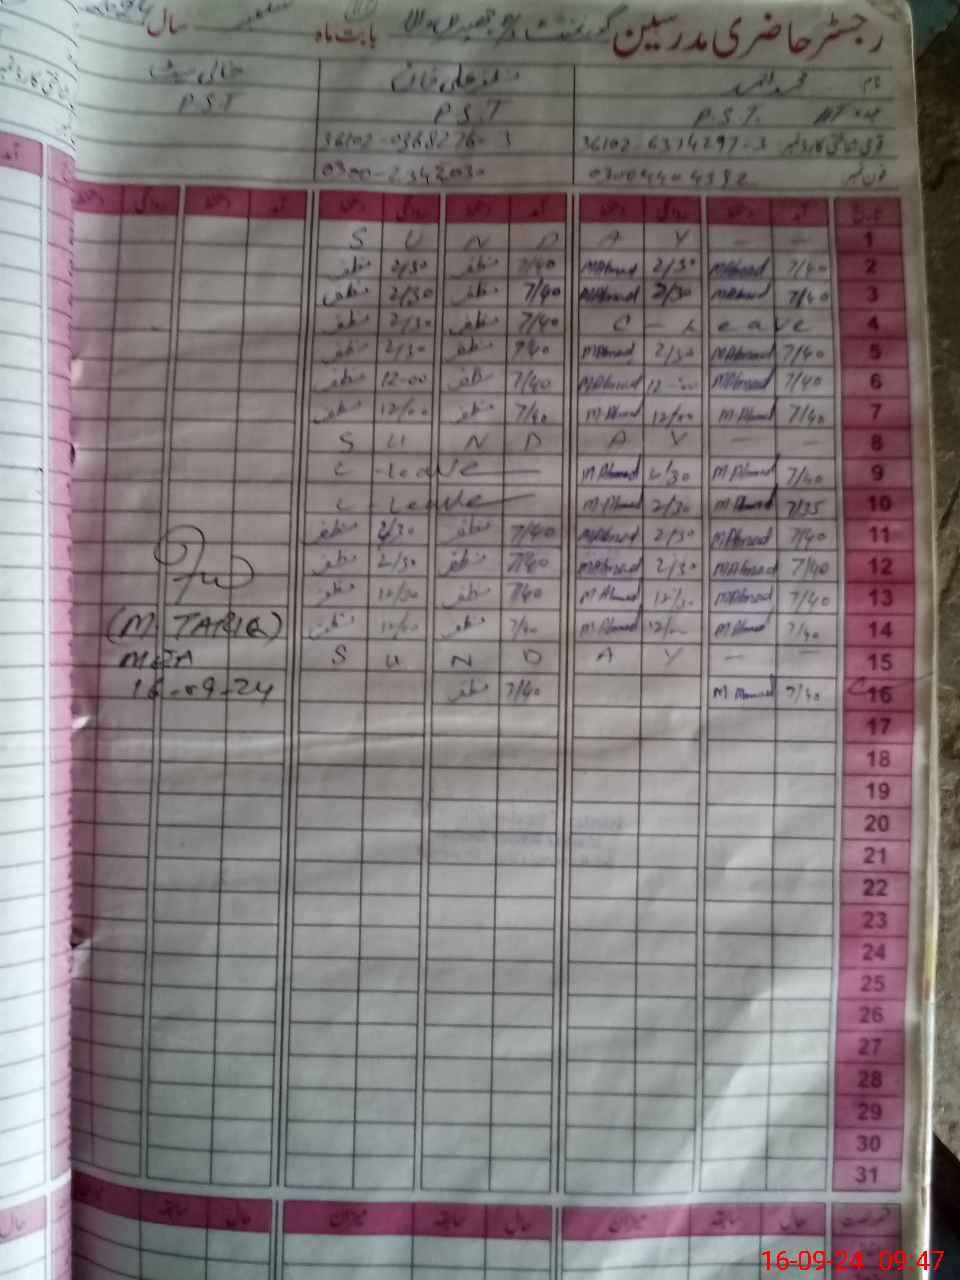 رجسٹر حاضری مدرسین گورنمنٹ بابت ماہ سال
نام محمد احمد مظفر علی خان خالی سیٹ
P.S.T. P.S.T P.S.T
36102-6314297-3 36102-0368276-3
03004404392 0300-2342030
1 S U N D A Y — —
2 7/40 M Ahmad 2/30 M Ahmad 7/40 مظفر 2/30 مظفر
3 7/40 M Ahmad 2/30 M Ahmad 7/40 مظفر 2/30 مظفر
4 C - Leave 7/40 مظفر 2/30 مظفر
5 7/40 M Ahmad 2/30 M Ahmad 7/40 مظفر 2/30 مظفر
6 7/40 M Ahmad 12-00 M Ahmad 7/40 مظفر 12-00 مظفر
7 7/40 M Ahmad 12/00 M Ahmad 7/40 مظفر 12/00 مظفر
8 S U N D A Y — —
9 7/40 M Ahmad 2/30 M Ahmad C - Leave —
10 7/35 M Ahmad 2/30 M Ahmad C - Leave —
11 7/40 M Ahmad 2/30 M Ahmad 7/40 مظفر 2/30 مظفر
12 7/40 M Ahmad 2/30 M Ahmad 7/40 مظفر 2/30 مظفر
13 7/40 M Ahmad 12/30 M Ahmad 7/40 مظفر 12/30 مظفر
14 7/40 M Ahmad 12/00 M Ahmad 7/40 مظفر 12/00 مظفر
(M. TARIQ)
15 S U N D A Y — —
MEA
16 7/40 M Ahmad 7/40 مظفر
16-09-24
17
18
19
20
21
22
23
24
25
26
27
28
29
30
31
حال سابقہ میزان حال سابقہ میزان حال سابقہ
16-09-24 09:47